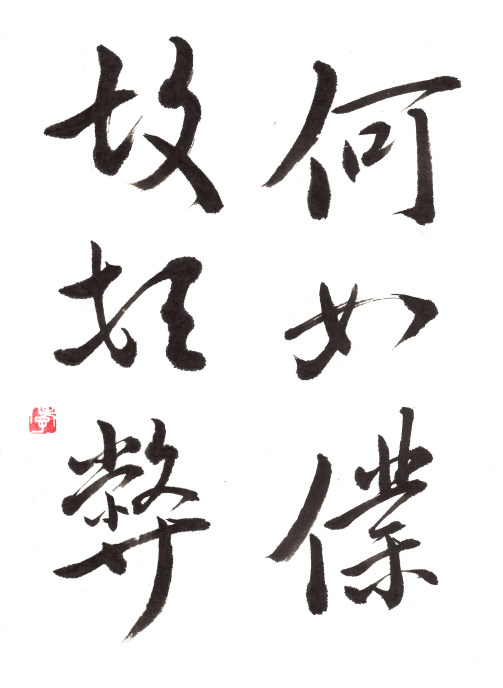 何如僕
故頓弊